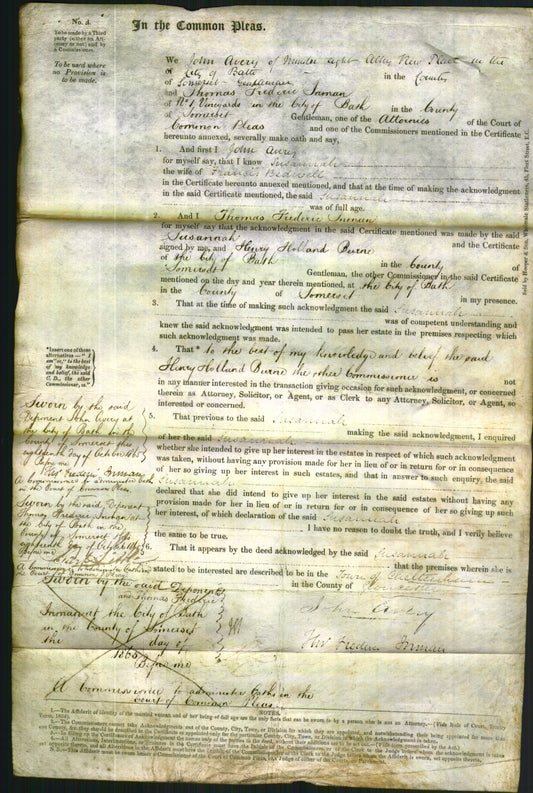 No. 4.
To be made by a Third
party (either an Attorney or not) and by
a Commissioner.
To be used where
no Provision is
to be made.
In the Common Pleas.
We John Avery of Number eight Abbey Place in the
City of Bath in the County
of Somerset Gentleman
and Thomas Frederic Inman
of No. 1 Vineyards in the City of Bath in the County
of Somerset Gentleman, one of the Attornies of the Court of
Common Pleas and one of the Commissioners mentioned in the Certificate
hereunto annexed, severally make oath and say,
1. And first I John Avery
for myself say, that I know Susannah
the wife of Francis Bidwell
in the Certificate hereunto annexed mentioned, and that at the time of making the acknowledgment
in the said Certificate mentioned, the said Susannah
was of full age.
2. And I Thomas Frederic Inman
for myself say that the acknowledgment in the said Certificate mentioned was made by the said
Susannah and the Certificate
signed by me, and Henry Holland Burne
of the City of Bath in the County of
Somerset Gentleman, the other Commissioner in the said Certificate
mentioned on the day and year therein mentioned, at the City of Bath
in the County of Somerset in my presence.
3. That at the time of making such acknowledgment the said Susannah
was of competent understanding and
knew the said acknowledgment was intended to pass her estate in the premises respecting which
such acknowledgment was made.
*Insert one of these
alternatives—"I
am" or, "to the best
of my knowledge
and belief, the said
C. D., the other
Commissioner, is."
4. That* to the best of my knowledge and belief the said
Henry Holland Burne the other Commissioner is not
in any manner interested in the transaction giving occasion for such acknowledgment, or concerned
therein as Attorney, Solicitor, or Agent, or as Clerk to any Attorney, Solicitor, or Agent, so
interested or concerned.
5. That previous to the said Susannah
making the said acknowledgment, I enquired
of her the said Susannah
whether she intended to give up her interest in the estates in respect of which such acknowledgment
was taken, without having any provision made for her in lieu of or in return for or in consequence
of her so giving up her interest in such estates, and that in answer to such enquiry, the said
Susannah
declared that she did intend to give up her interest in the said estates without having any
provision made for her in lieu of or in return for or in consequence of her so giving up such
her interest, of which declaration of the said Susannah
I have no reason to doubt the truth, and I verily believe
the same to be true.
6. That it appears by the deed acknowledged by the said Susannah
that the premises wherein she is
stated to be interested are described to be in the Town of Cheltenham
in the County of
John Avery
Tho.s Frederic Inman
Sworn by the said
Deponent John Avery at
the City of Bath in the
County of Somerset this
eighteenth day of October 1865
Before me
Tho.s Frederic Inman
A Commissioner to administer Oaths
in the Court of Common Pleas
Sworn by the said Deponent
Thomas Frederic Inman at
the City of Bath in the
County of Somerset this
day of October 1865
Before me
A Commissioner to administer Oaths in
the Court of Common Pleas
Sworn by the said Deponents
and Thomas Frederic
Inman at the City of Bath
in the County of Somerset
the day of
1865
Before me
A Commissioner to administer Oaths in the
Court of Common Pleas
NOTES.
Sold by Hooper & Son, Wholesale Stationers, 45, Fleet Street, E.C.